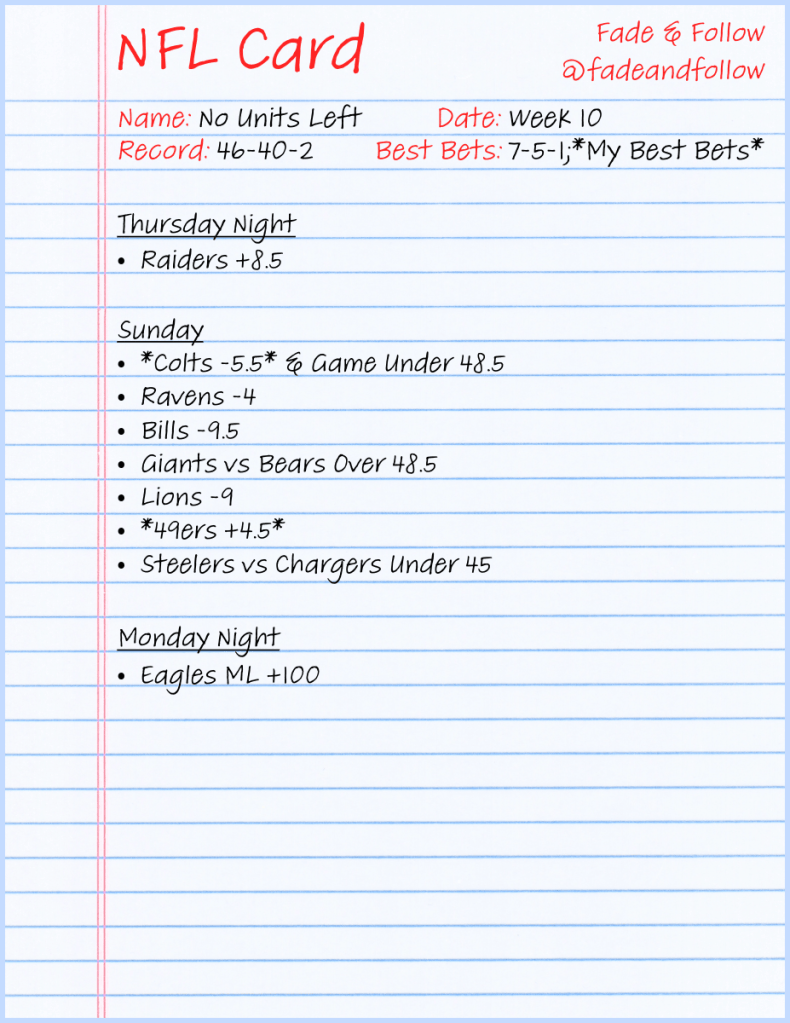 NFL Card
Fade & Follow
@fadeandfollow
Name: No Units Left Date: Week 10
Record: 46-40-2 Best Bets: 7-5-1;*My Best Bets*
Thursday Night
• Raiders +8.5
Sunday
• *Colts -5.5* & Game Under 48.5
• Ravens -4
• Bills -9.5
• Giants vs Bears Over 48.5
• Lions -9
• *49ers +4.5*
• Steelers vs Chargers Under 45
Monday Night
• Eagles ML +100